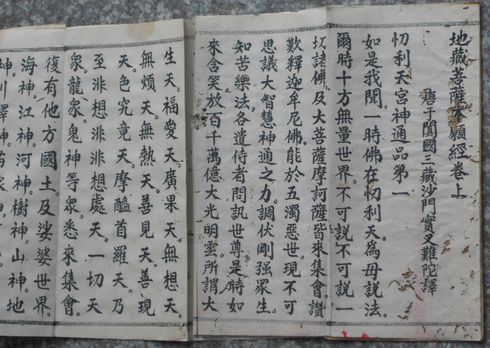 地藏菩薩本願經卷上
唐于闐國三藏沙門實叉難陀譯
忉利天宮神通品第一
如是我聞。一時佛在忉利天。為母說法。
爾時十方無量世界。不可說不可說一
切諸佛。及大菩薩摩訶薩。皆來集會。讚
歎釋迦牟尼佛。能於五濁惡世。現不可
思議大智慧神通之力。調伏剛強眾生。
知苦樂法。各遣侍者。問訊世尊。是時如
來含笑。放百千萬億大光明雲。所謂大
生天。福愛天。廣果天。無想天。
無煩天。無熱天。善見天。善現
天。色究竟天。摩醯首羅天。乃
至非想非非想處天。一切天
眾。龍眾。鬼神等眾。悉來集會。
復有他方國土。及娑婆世界。
海神。江神。河神。樹神。山神。地